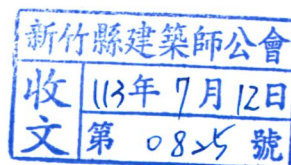 新竹縣建築師公會
收文
113年7月12日
第 0825 號